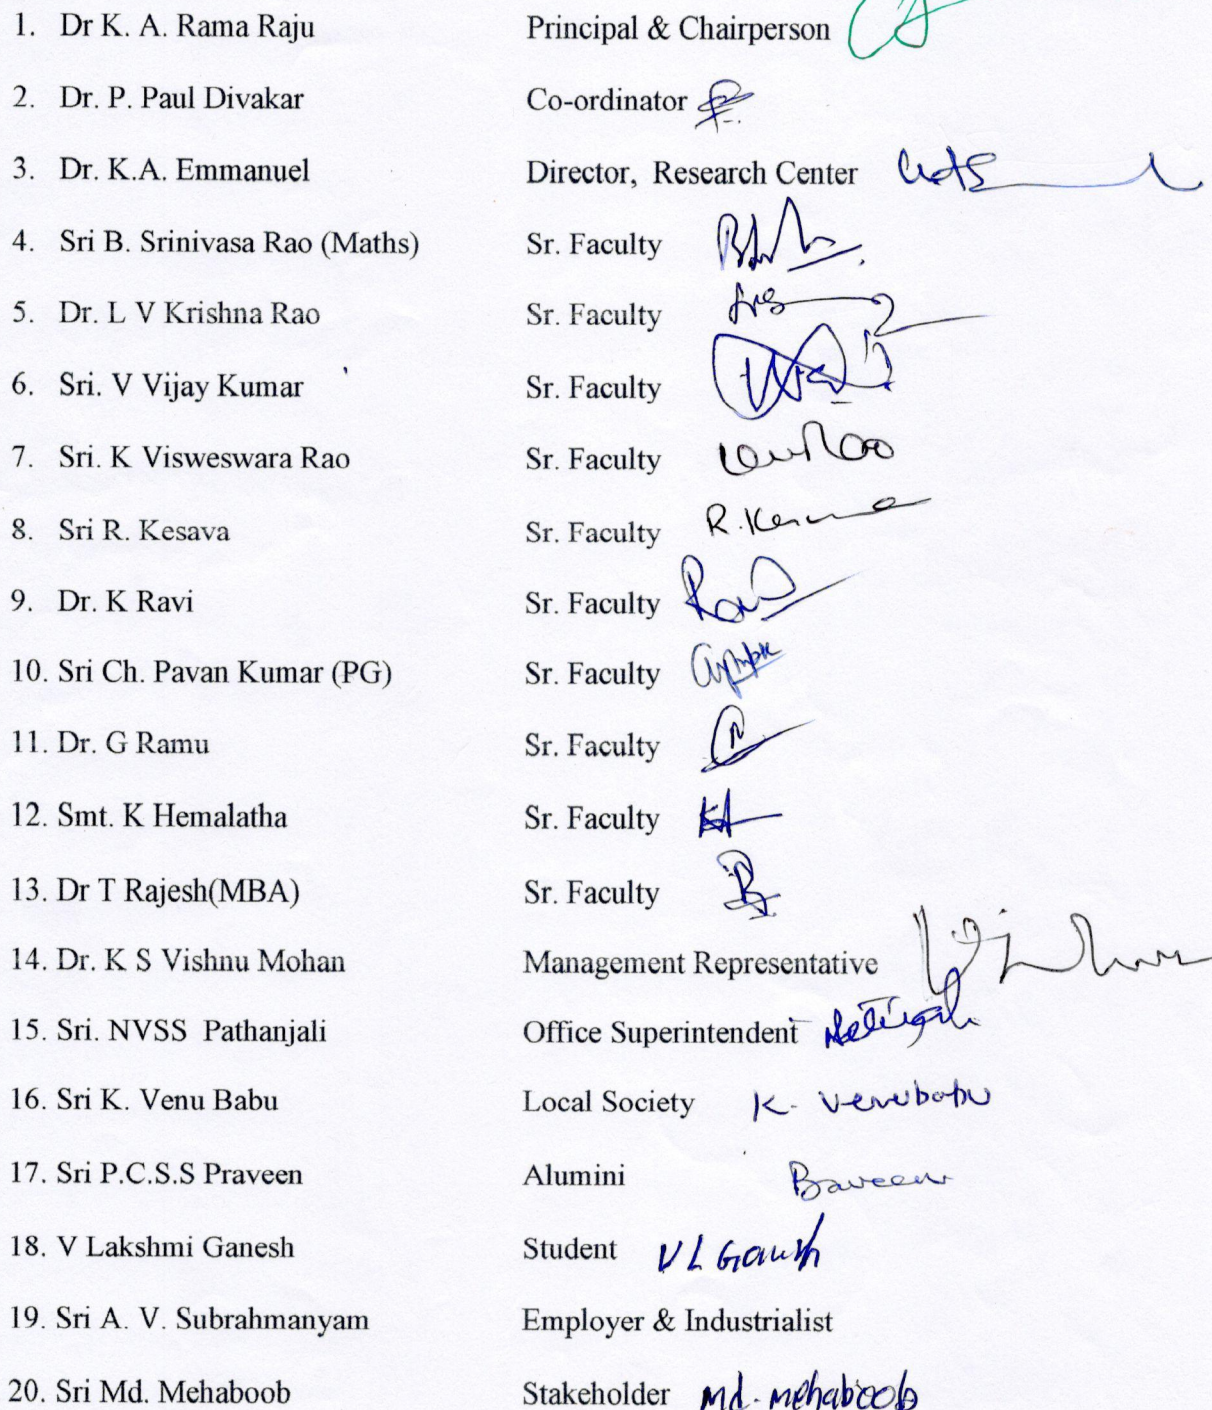 1. Dr K. A. Rama Raju Principal & Chairperson
2. Dr. P. Paul Divakar Co-ordinator
3. Dr. K.A. Emmanuel Director, Research Center
4. Sri B. Srinivasa Rao (Maths) Sr. Faculty
5. Dr. L V Krishna Rao Sr. Faculty
6. Sri. V Vijay Kumar Sr. Faculty
7. Sri. K Visweswara Rao Sr. Faculty
8. Sri R. Kesava Sr. Faculty
9. Dr. K Ravi Sr. Faculty
10. Sri Ch. Pavan Kumar (PG) Sr. Faculty
11. Dr. G Ramu Sr. Faculty
12. Smt. K Hemalatha Sr. Faculty
13. Dr T Rajesh(MBA) Sr. Faculty
14. Dr. K S Vishnu Mohan Management Representative
15. Sri. NVSS Pathanjali Office Superintendent
16. Sri K. Venu Babu Local Society K. Venubabu
17. Sri P.C.S.S Praveen Alumini
18. V Lakshmi Ganesh Student V L Ganesh
19. Sri A. V. Subrahmanyam Employer & Industrialist
20. Sri Md. Mehaboob Stakeholder Md. Mehaboob